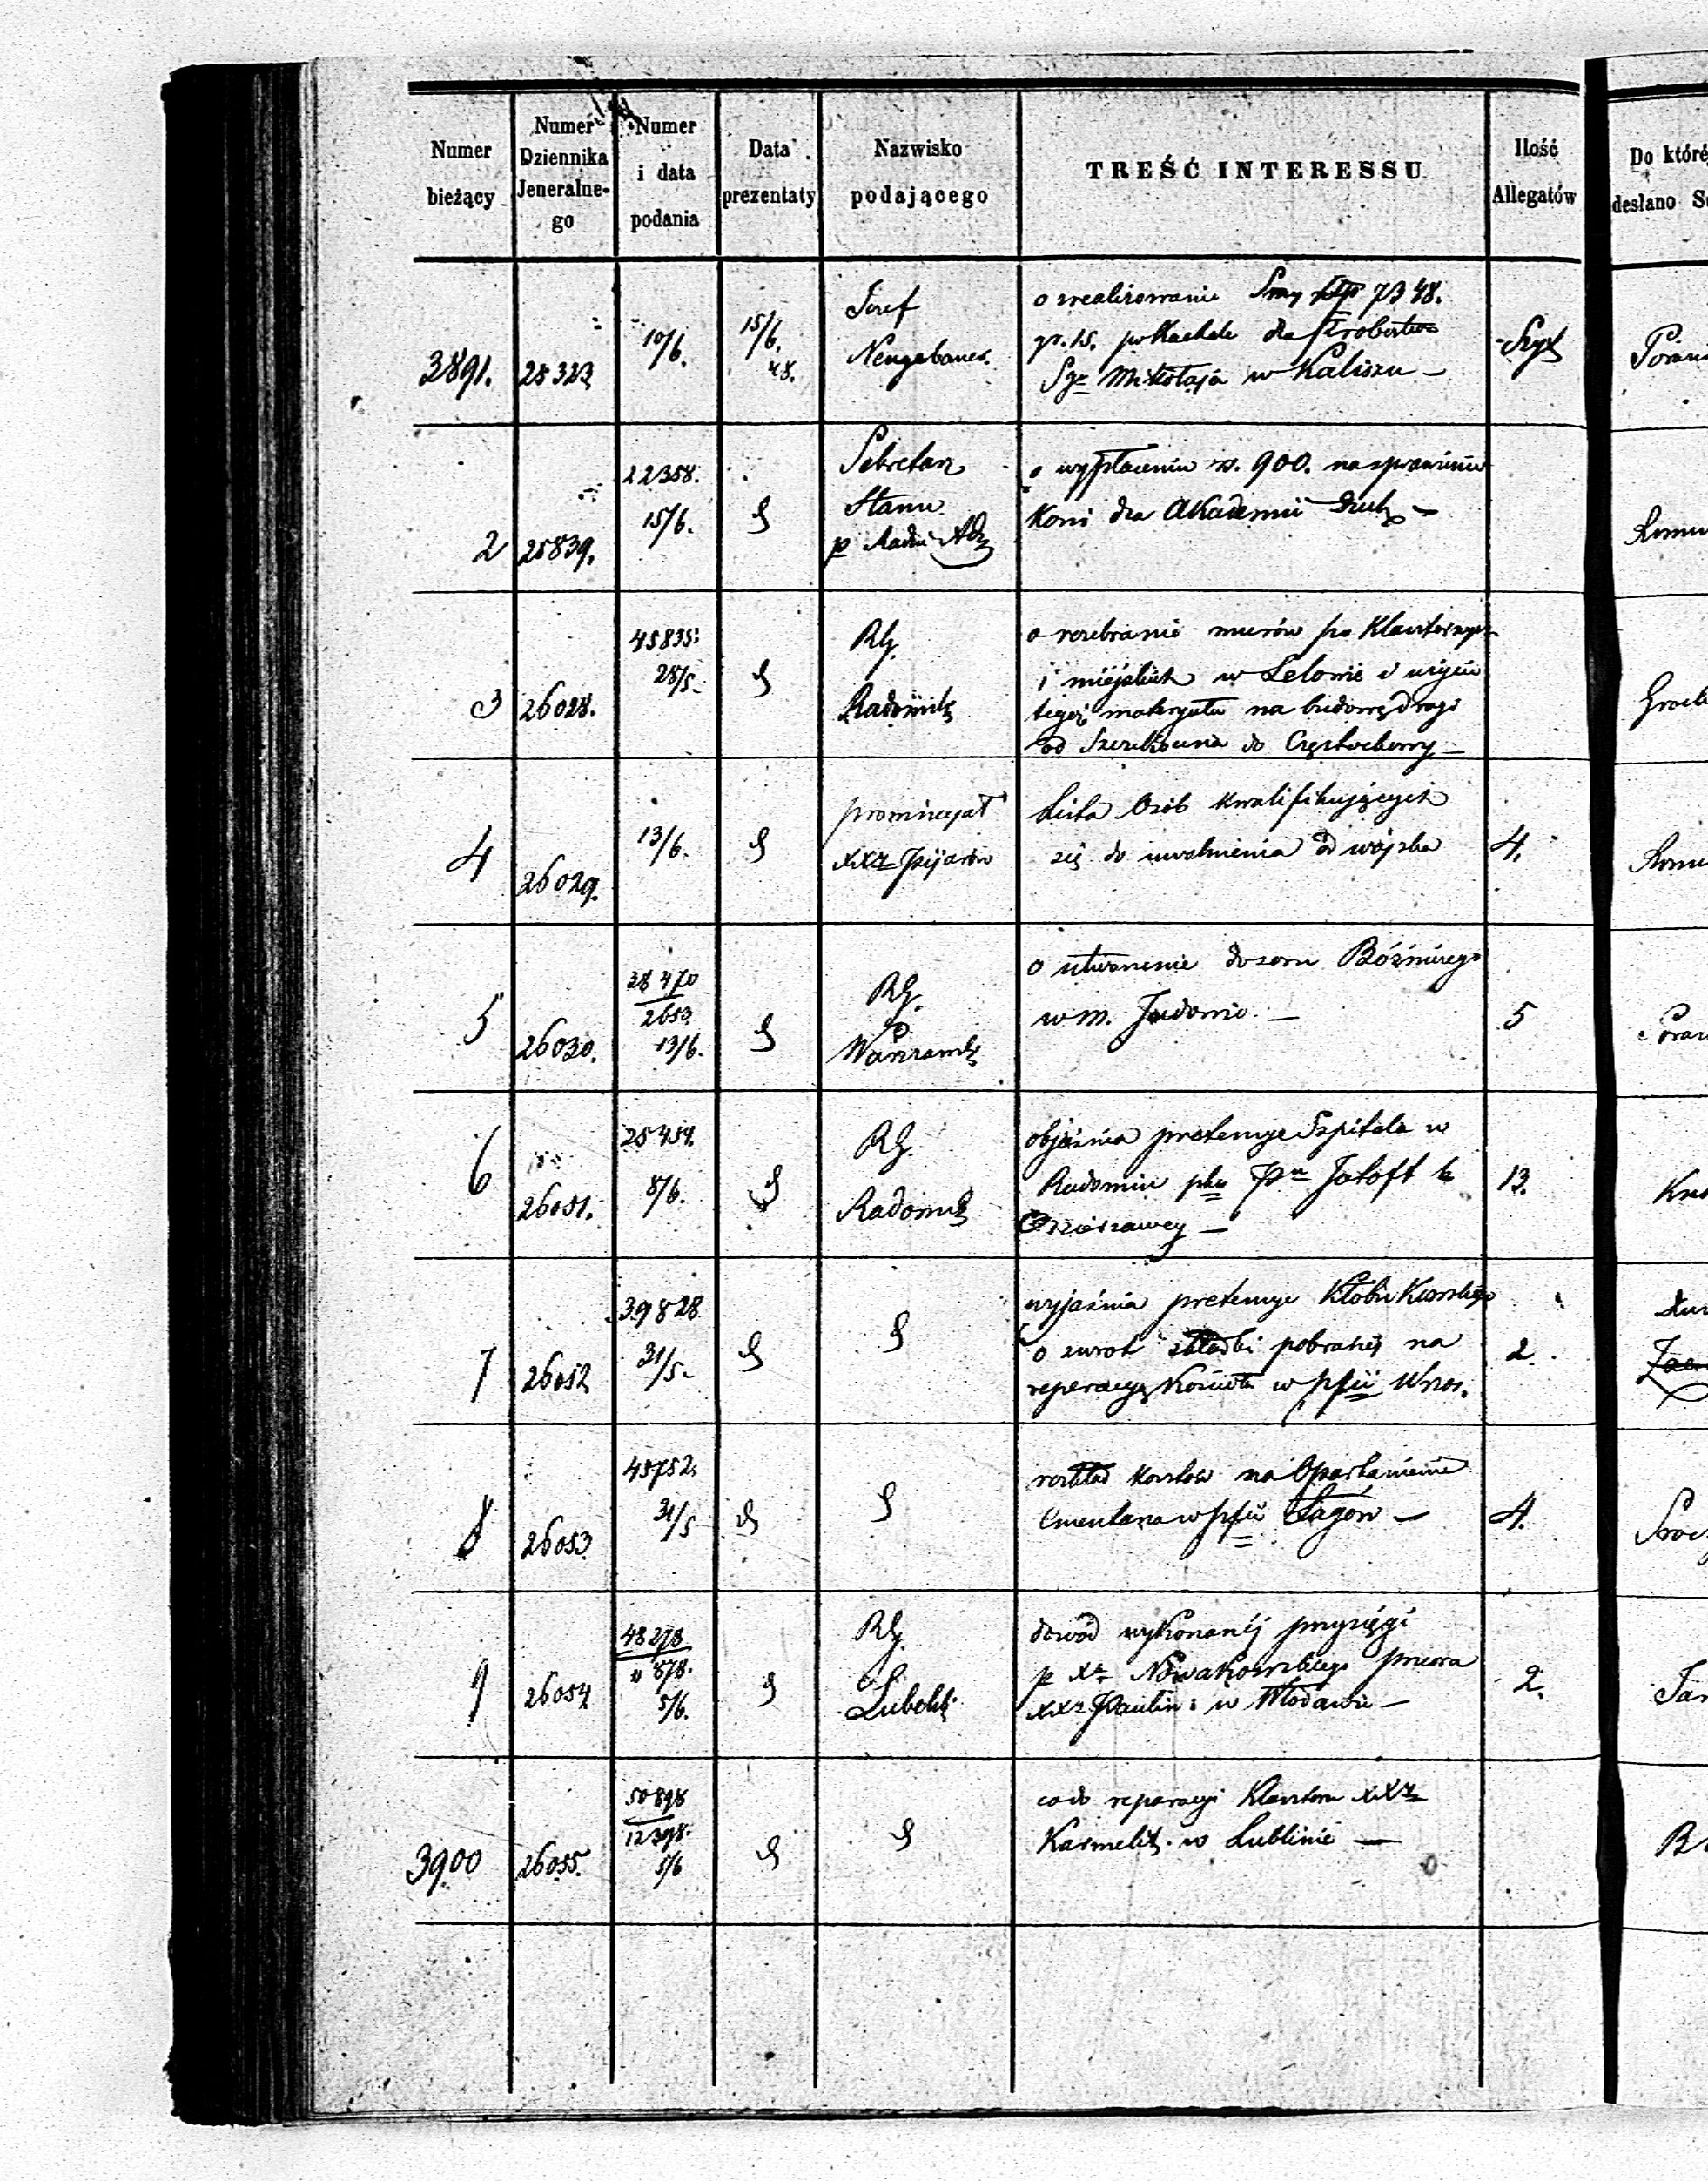 Numer bieżący
Numer Dziennika Jeneralne-go
Numer i data podania
Data prezentaty
Nazwisko podającego
TREŚĆ INTERESSU
Ilość Allegatów
Do któré
desłano
3891. 25323 10/6. 15/6. 48.
Józef
Neugebauer
o zrealizowanie 7348.
gr. 15. dla
Sgo Mikołaja w Kaliszu —
2 25839. 22358. 15/6.
Sekretarz
Stanu
p
o wypłacenie rs. 900. na sprawienie
Koni dla Akademii Duch —
3 26028. 45835. 28/5.
RG.
Radomsk
o rozebranie murów po Klasztornych
i miejskich w Lelowie i użycie
tegoż materyału na budowę drogi
od Szczekocina do Częstochowy —
4 26029. 13/6.
prowincyał
XXr Pijarów
Lista Osób kwalifikujących
się do uwolnienia od wojska
4.
5 26030. 28470 2653. 13/6.
RG.
Warszawsk
o utworzenie dozoru Bóżniczego
w m. Jadowie. —
5
6 26051. 25454. 8/6.
RG.
Radomsk
objaśnia pretensye Szpitala w
Radomiu
13.
7 26052 39828 31/5.
wyjaśnia pretensye Kłobukowskiego
o zwrot składki pobranej na
reperacyę Kościoła w pfii Wrzos.
2.
8 26053. 45752. 31/5
rozkład kosztów na Oparkanienie
Cmentarza w pfii Łagów —
4.
9 26054 48278 878. 5/6.
RG.
Lubelsk
dowód wykonanéj przysięgi
p Xa Nowakowskiego przeora
XXr Paulin: w Włodawie —
2.
3900 26055. 50898 12398. 5/6
co do reperacyi Klasztoru XXr
Karmelit. w Lublinie —